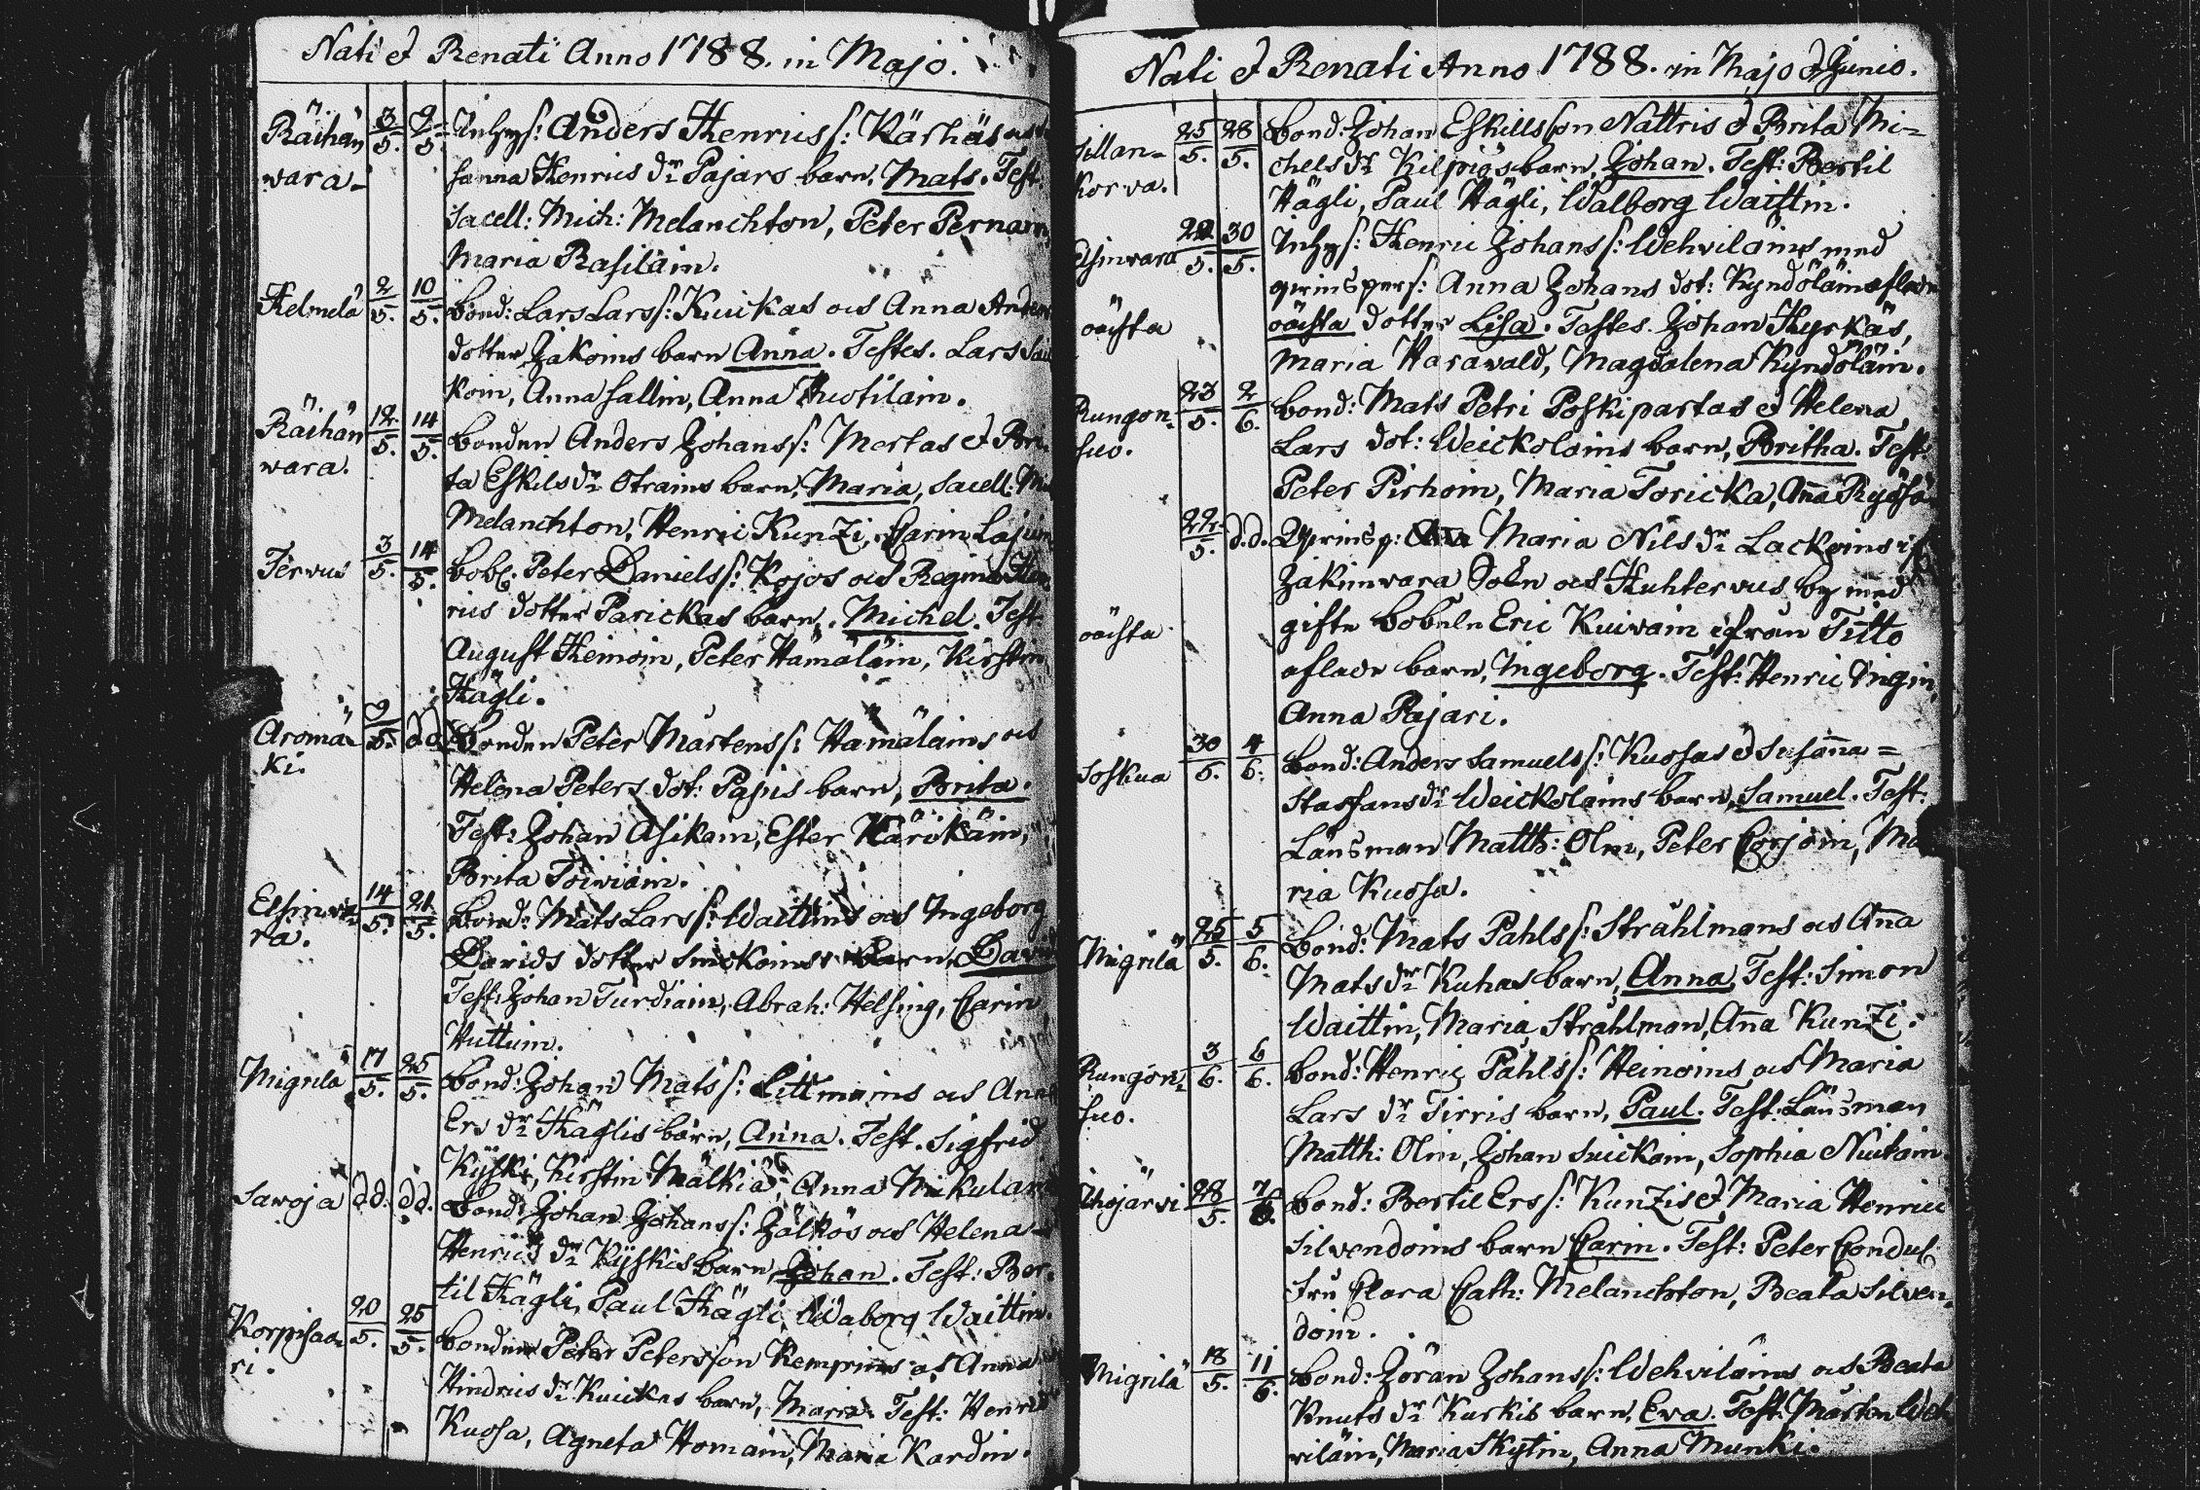 Nati et Renati Anno 1788. in Majo.
Räihän 3/5. 9/5. Inhys: Anders Henrics s: Kärhäs
wara. sanna Henrics dr Pajars barn, Mats. Test:
Sacell: Mich: Melanchton, Peter Pernan
Maria Rasiläin.
Helmelä 2/5. 10/5. Bond: Lars Lars s: Kuickas och Anna Anders
dotter Jakoins barn Anna. Testes. Lars
koin, Anna Sallin, Anna Huotilain.
Räihän 12/5. 14/5. Bonden Anders Johans s: Mertas et Bri
wara. ta Eskils dr Otrains barn, Maria, Sacell. M
Melanchton, Henric Kunzi, Carin
Tervus 3/5. 14/5. Bob. Peter Daniels s: Kojos och Regina Hen
rics dotter Parickas barn, Michel. Test:
August Heinoin, Peter Hämäläin, Kirstin
Hägli.
Aromä 9/5. dd Bonden Peter Mårtens s: Hämäläins och
ki. Helena Peters dot: Papis barn, Brita.
Test: Johan Asikain, Ester Kärikäin,
Brita Toiviain.
Elsinwa 14/5. 21/5. Bond: Mats Lars s: Waittins och Ingeborg
ra. Davids dotter Suickoins barn, David
Test: Johan Turdiain, Abrah: Helsing, Carin
Huttuin.
Migrilä 17/5. 25/5. Bond: Johan Mats s: Littmains och Anna
Ers dr Häglis barn, Anna. Test. Sigfrid
Kyski, Kirstin Mälkiä, Anna Mikulain
Sawoja dd. dd. Bond: Johan Johans s: Jälkös och Helena
Henrics dr Kyskis barn, Johan. Test: Ber
til Hägli, Paul Hägli, Waborg Waittin.
Korpisaa 20/5. 25/5. Bonden Peter Petersson Kemppins och Anna
ri. Hindrics dr Kuickas barn, Maria. Test: Henric
Kuosa, Agneta Homain, Maria Kardin.
Nati et Renati Anno 1788. in Majo et Junio.
Sillan- 25/5. 28/5. Bond: Johan Eskillsson Nättris et Brita Mi-
korva. chels dr Kilpiäs barn, Johan. Test: Bertil
Hägli, Paul Hägli, Walborg Waittin.
Elsinwara 22/5. 30/5. Inhys: Henric Johans s: Wehviläins med
qvinspers: Anna Johans dot: Kyndöläins aflade
oächta oächta dotter Lisa. Testes. Johan Hyrkäs,
Maria Harawald, Magdalena Kyndöläin.
Rungon- 23/5. 2/6. Bond: Mats Petri Poskipartas et Helena
suo. Lars dot: Weickolains barn, Britha. Test:
Peter Pirhoin, Maria Toricka, Anna Ryösä
22/5. d.d. Qvinsp: Maria Nils dr Lackoins
Jakimvara Sokn och Huhtervus by med
oächta gifte bobeln Eric Kuivain ifrån Titto
aflade barn, Ingeborg. Test: Henric Ingin,
Anna Pajari.
Soskua 30/5. 4/6. Bond: Anders Samuels s: Kuosas et Susanna
Staffans dr Weickolains barn, Samuel. Test:
Länsman Matth: Olin, Peter Corjoin, Ma
ria Kuosa.
Migrilä 25/5. 5/6. Bond: Mats Pahls s: Stråhlmans och Anna
Mats dr Kuhas barn, Anna, Test: Simon
Waittin, Maria Stråhlman, Anna Kunzi.
Rungon- 3/6. 6/6. Bond: Henric Pahls s: Heinoins och Maria
suo. Lars dr Tirris barn, Paul. Test: Länsman
Matth: Olin, Johan Suickain, Sophia Niutain
Ihojärvi 28/5. 7/6. Bond: Bertil Ers s: Kunzis et Maria Henrics
Silvendoins barn Carin. Test: Peter Condul
fru Clara Cath: Melanchton, Beata Silven,
doin.
Migrilä 18/5. 11/6. Bond: Jöran Johans s: Wehviläins och Beata
Knuts dr Kurkis barn, Eva. Test: Mårten Weh
viläin, Maria Skytin, Anna Munki.